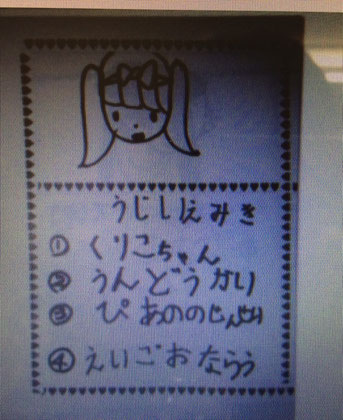 うじしえみき
① くりこちゃん
② うんどうかい
③ ぴあのの
④ えいごおならう